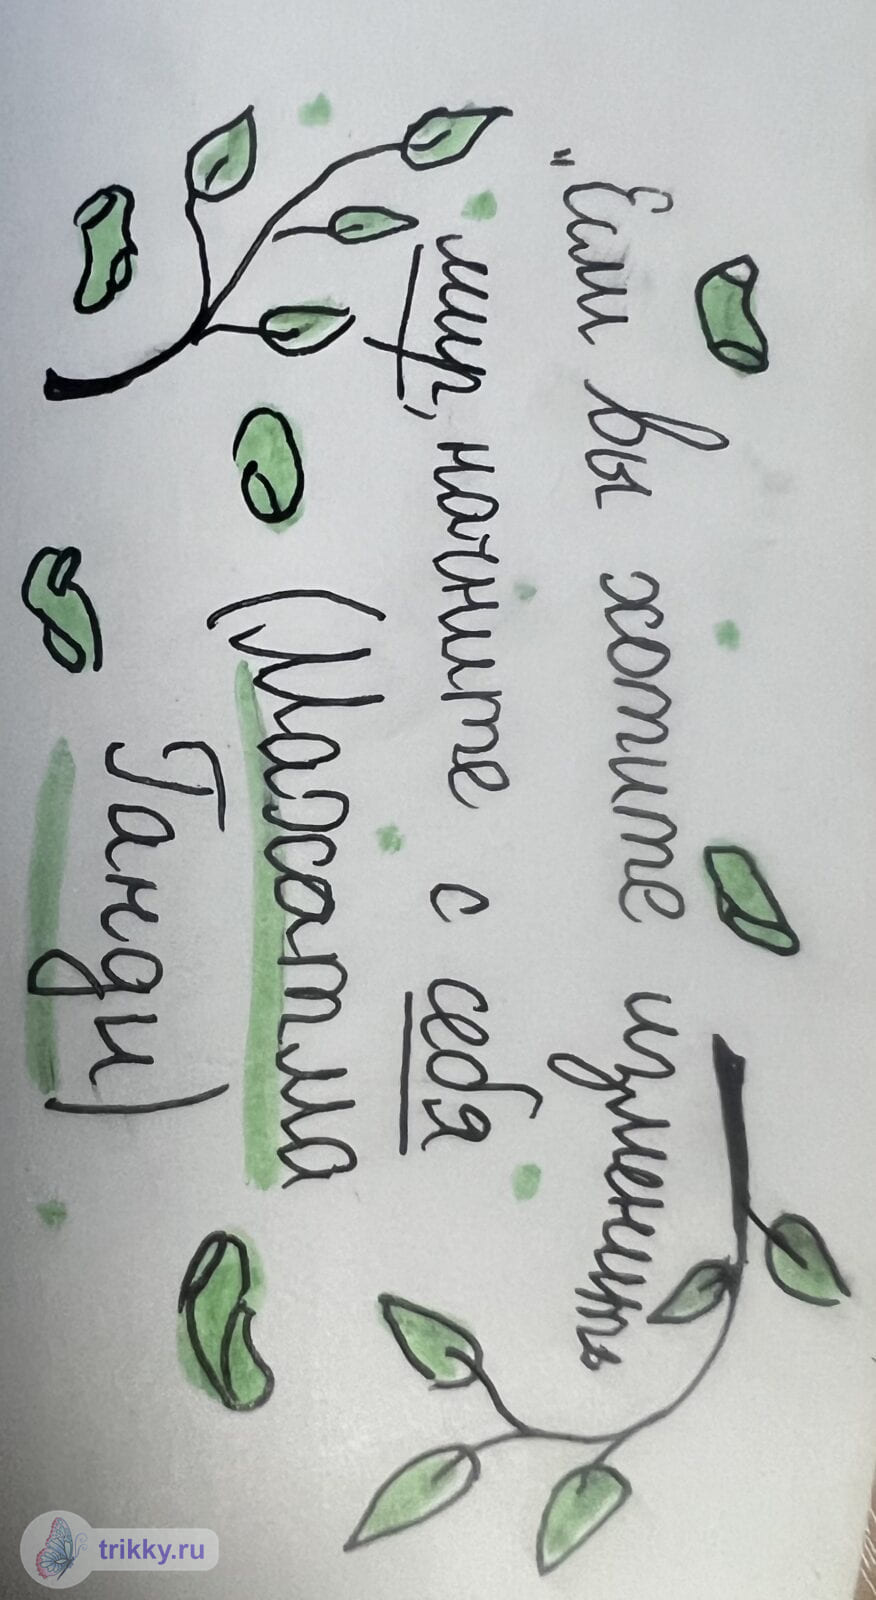 "Если вы хотите изменить
мир, начните с себя
(Махатма
Ганди)
trikky.ru